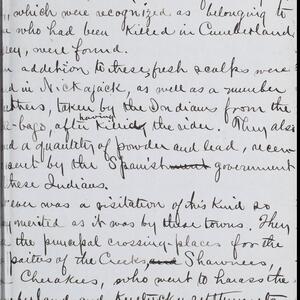 , which were recognized as belonging to
who had been Killed in Cumberland
ey, were found.
n addition to these, fresh scalps were
d in Nickajack, as well as a number
tters, taken by the Indians from the
-bags, after having Killed the rider. They also
d a quantity of powder and lead, recen
sent by the Spanish government
these Indians.
ever was a visitation of this Kind so
y merited as it was by these towns. They
the principal crossing-places for the
parties of the Creeks, and Shawnees,
Cherokees, who went to harass the